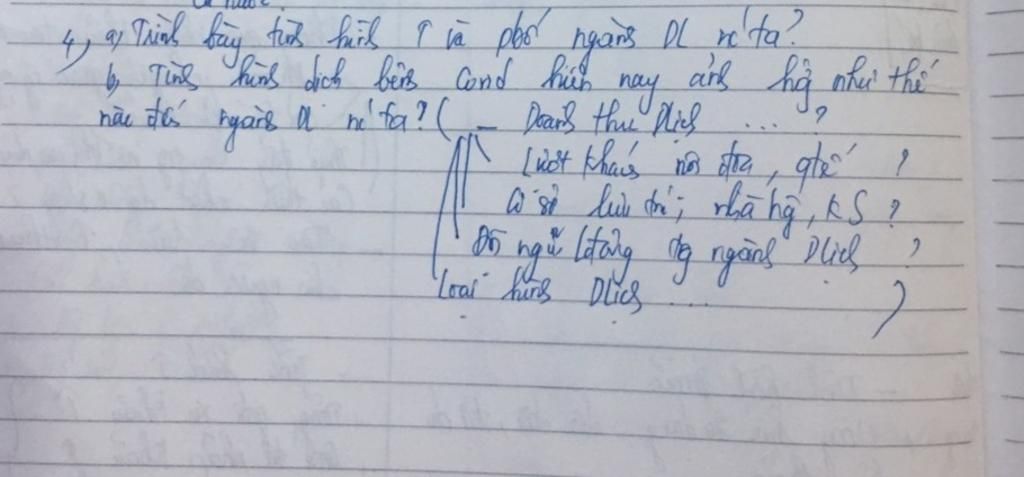 4, a, Trình bày tình hình ↑ và pbố ngành DL nc' ta?
b, Tình hình dịch bệnh Covid hiện nay ảnh hg như thế
nào đến ngành DL nc' ta? ( – Doanh thu Dlịch ... ?
Lượt khách nội địa, qtế ?
Cơ sở lưu trú; nhà hg, KS ?
Đội ngũ lđộng tg ngành Dlịch ?
Loại hình Dlịch .... )